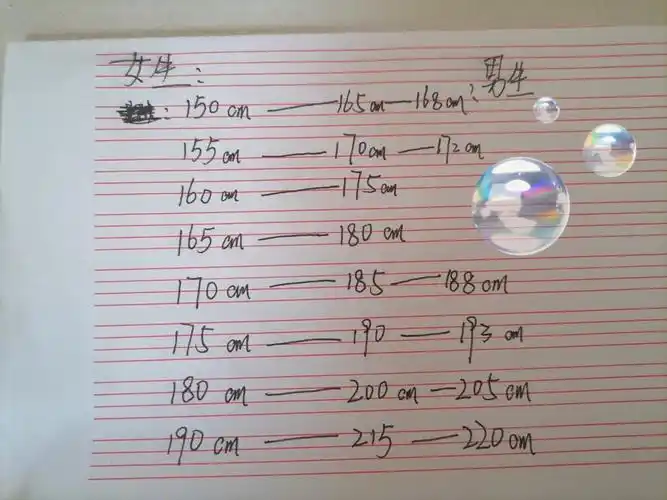 女生： 男生
：150cm——165cm—168cm：
155cm——170cm—172cm
160cm——175cm
165cm——180cm
170cm——185—188cm
175cm——190—193cm
180cm——200cm—205cm
190cm——215—220cm